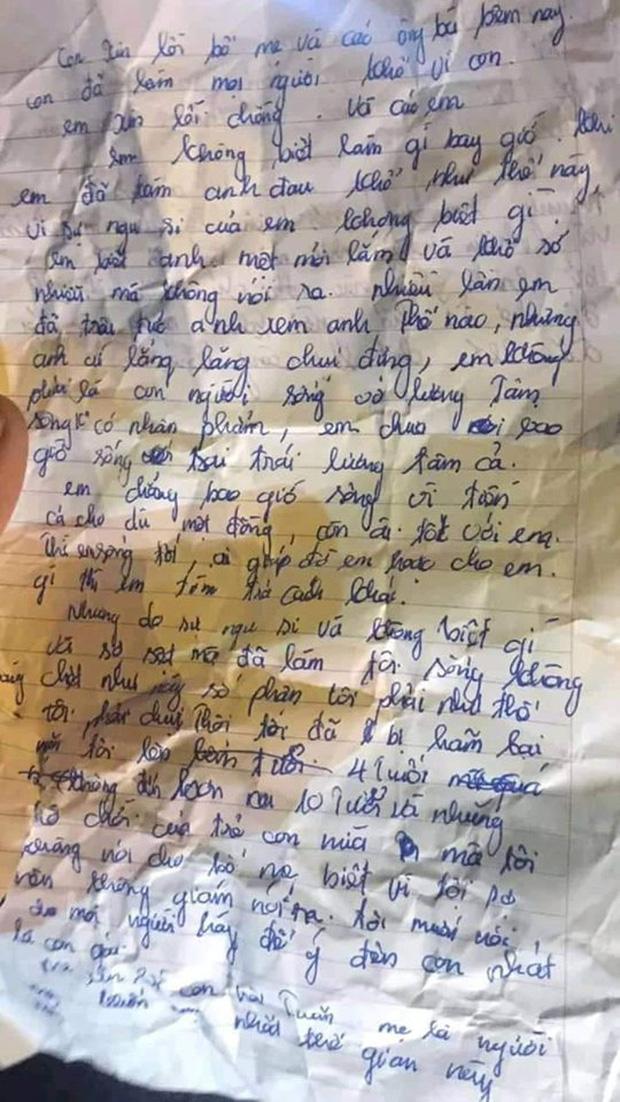 Con xin lỗi bố mẹ và các ông bà bêm nay.
con đã làm mọi người khổ vì con.
em xin lỗi chồng. và các em
em không biết làm gì bay giờ. khi
em đã làm anh đau khổ như thế này,
vì sự ngu si của em không biết gì.
em biết anh mệt mỏi lắm và khổ sở
nhiều mà không nói ra. nhiều lần em
đã trêu tức anh xem anh thế nào, nhưng
anh cứ lẳng lặng chịu đựng, em không
phải là con người sống vô lương tâm
sống k có nhân phẩm, em chưa bao
giờ sống trái lương tâm cả.
em chẳng bao giờ sống vì tiền
cả cho dù một đồng, còn ai tốt với em.
thì em sống tốt, ai giúp đỡ em hoặc cho em.
gì thì em tìm trả cách khác.
Nhưng do sự ngu si và không biết gì
và sợ sệt mà đã làm tôi sống không
chết như này số phận tôi phải như thế
tôi phải chịu thôi tôi đã bị hãm hại
tôi lên 4 tuổi
không đến 10 tuổi và những
trò chơi của trẻ con mà tôi
không nói cho bố mẹ biết vì tôi sợ
vẫn không giám nói ra. tôi muốn nói
mọi người hãy để ý đến con nhất
là con gái.
xin lỗi con trai Tuấn mẹ là người
nhất thế gian này